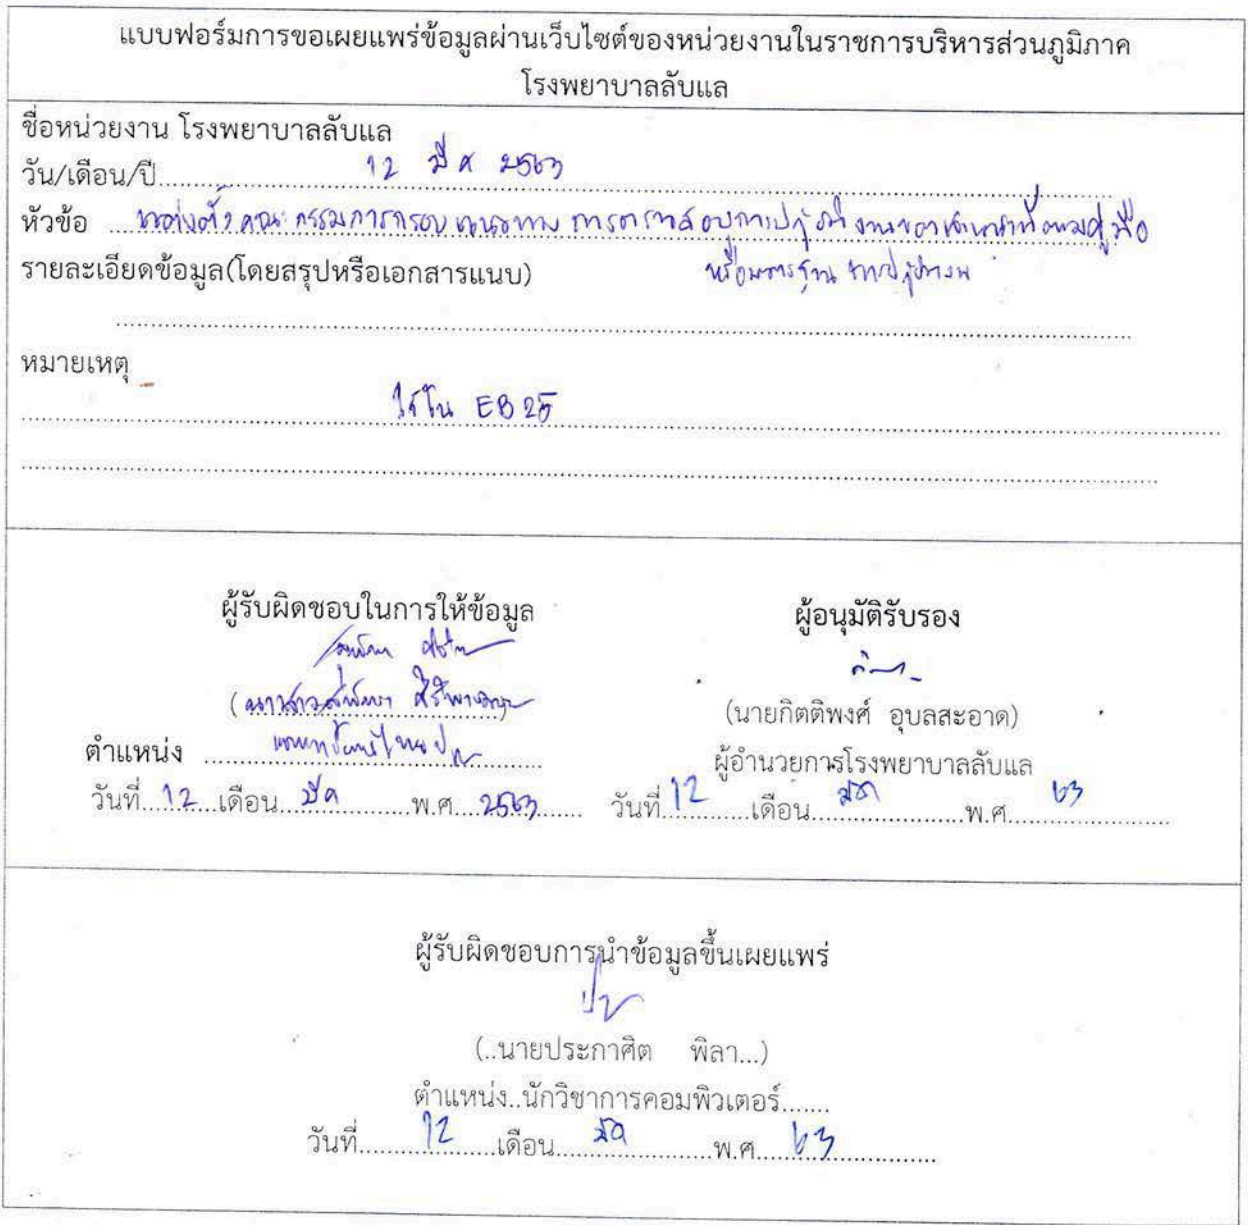 แบบฟอร์มการขอเผยแพร่ข้อมูลผ่านเว็บไซต์ของหน่วยงานในราชการบริหารส่วนภูมิภาค
โรงพยาบาลลับแล
ชื่อหน่วยงาน โรงพยาบาลลับแล
วัน/เดือน/ปี 12 มีค 2563
หัวข้อ แต่งตั้งคณะกรรมการกรอบแนวทาง การตรวจสอบการปฏิบัติงานของเจ้าหน้าที่ตามคู่มือ
หรือมาตรฐาน การปฏิบัติงาน
รายละเอียดข้อมูล(โดยสรุปหรือเอกสารแนบ)
หมายเหตุ
ใช้ใน EB 25
ผู้รับผิดชอบในการให้ข้อมูล
(นางสาวสุพัตรา
ตำแหน่ง แพทย์แผนไทย
วันที่..12....เดือน...มีค........พ.ศ....2563......
ผู้อนุมัติรับรอง
(นายกิตติพงศ์ อุบลสะอาด)
ผู้อำนวยการโรงพยาบาลลับแล
วันที่ 12 เดือน มีค พ.ศ. 63
ผู้รับผิดชอบการนำข้อมูลขึ้นเผยแพร่
(..นายประกาศิต พิลา...)
ตำแหน่ง..นักวิชาการคอมพิวเตอร์.......
วันที่ 12 เดือน มีค พ.ศ. 63